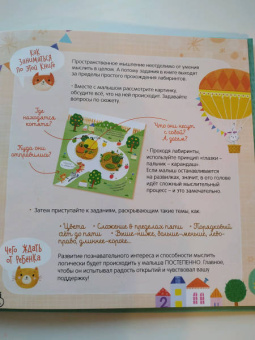 КАК
ЗАНИМАТЬСЯ
ПО ЭТОЙ КНИГЕ
Пространственное мышление неотделимо от умения
мыслить в целом. А потому задания в книге выходят
за пределы простого прохождения лабиринтов.
• Вместе с малышом рассмотрите картинку,
обсудите всё, что на ней происходит. Задавайте
вопросы по сюжету.
Где
находятся
котята?
Куда они
отправились?
Что они видят
с собой?
А дома?
• Проходя лабиринты,
используйте принцип «глазки –
пальчик – карандаш».
Если малыш останавливается
на развилках, значит, в его голове
идёт сложный мыслительный
процесс – и это замечательно.
• Затем приступайте к заданиям, раскрывающим такие темы, как:
• Цвета • Сложение в пределах пяти • Порядковый
счёт до пяти • Выше-ниже, больше-меньше, лево-
право, длиннее-короче...
ЧЕГО ЖДАТЬ
ОТ РЕБЕНКА
Развитие познавательного интереса и способности мыслить
логически будет происходить у малыша ПОСТЕПЕННО. Главное,
чтобы он испытывал радость открытий и чувствовал вашу
поддержку!